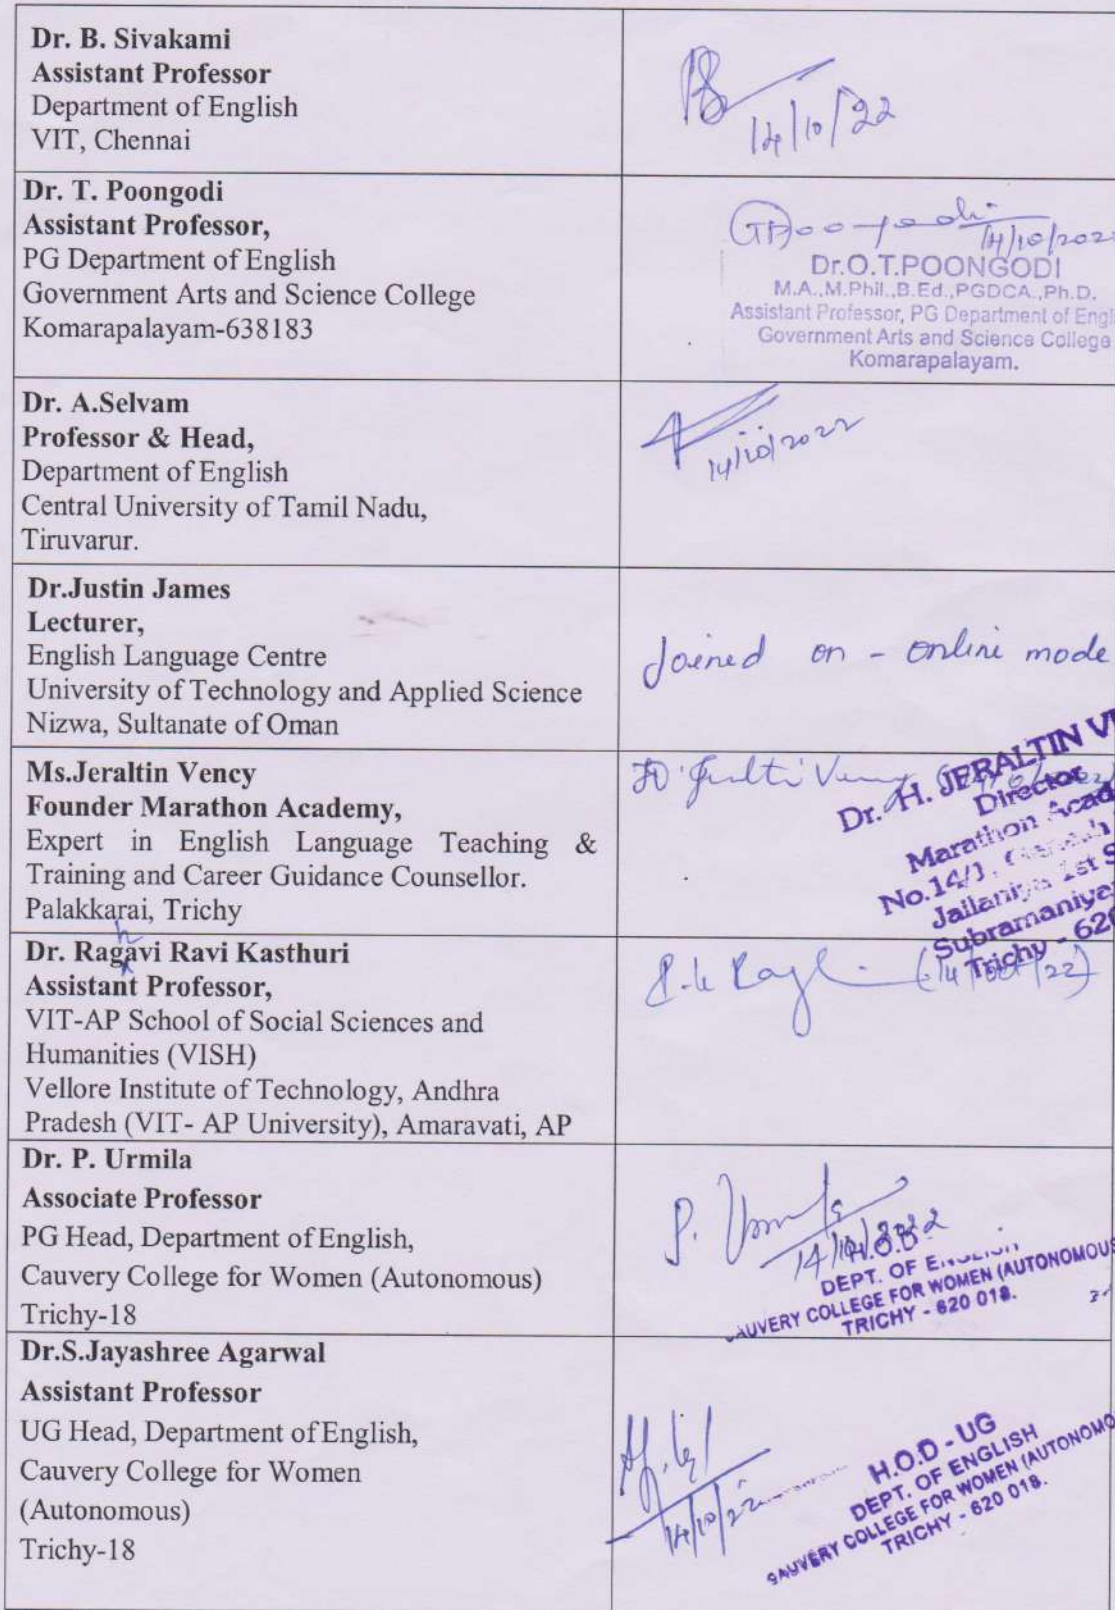 Dr. B. Sivakami
Assistant Professor
Department of English
VIT, Chennai
14/10/22
Dr. T. Poongodi
Assistant Professor,
PG Department of English
Government Arts and Science College
Komarapalayam-638183
14/10/202
Dr.O.T.POONGODI
M.A.,M.Phil.,B.Ed.,PGDCA.,Ph.D.
Assistant Professor, PG Department of Engli
Government Arts and Science College
Komarapalayam.
Dr. A.Selvam
Professor & Head,
Department of English
Central University of Tamil Nadu,
Tiruvarur.
14/10/2022
Dr.Justin James
Lecturer,
English Language Centre
University of Technology and Applied Science
Nizwa, Sultanate of Oman
Joined on - online mode
Ms.Jeraltin Vency
Founder Marathon Academy,
Expert in English Language Teaching &
Training and Career Guidance Counsellor.
Palakkarai, Trichy
Dr. H. JERALTIN VE
Director
Marathon Acad
No.14/1,
Jailaniya 1st S
Subramaniya
Trichy - 620
Dr. Raghavi Ravi Kasthuri
Assistant Professor,
VIT-AP School of Social Sciences and
Humanities (VISH)
Vellore Institute of Technology, Andhra
Pradesh (VIT- AP University), Amaravati, AP
(14/Oct/22)
Dr. P. Urmila
Associate Professor
PG Head, Department of English,
Cauvery College for Women (Autonomous)
Trichy-18
14/10/2022
H.O.D
DEPT. OF ENGLISH
CAUVERY COLLEGE FOR WOMEN (AUTONOMOUS
TRICHY - 620 018.
Dr.S.Jayashree Agarwal
Assistant Professor
UG Head, Department of English,
Cauvery College for Women
(Autonomous)
Trichy-18
14/10/22
H.O.D - UG
DEPT. OF ENGLISH
CAUVERY COLLEGE FOR WOMEN (AUTONOMO
TRICHY - 620 018.